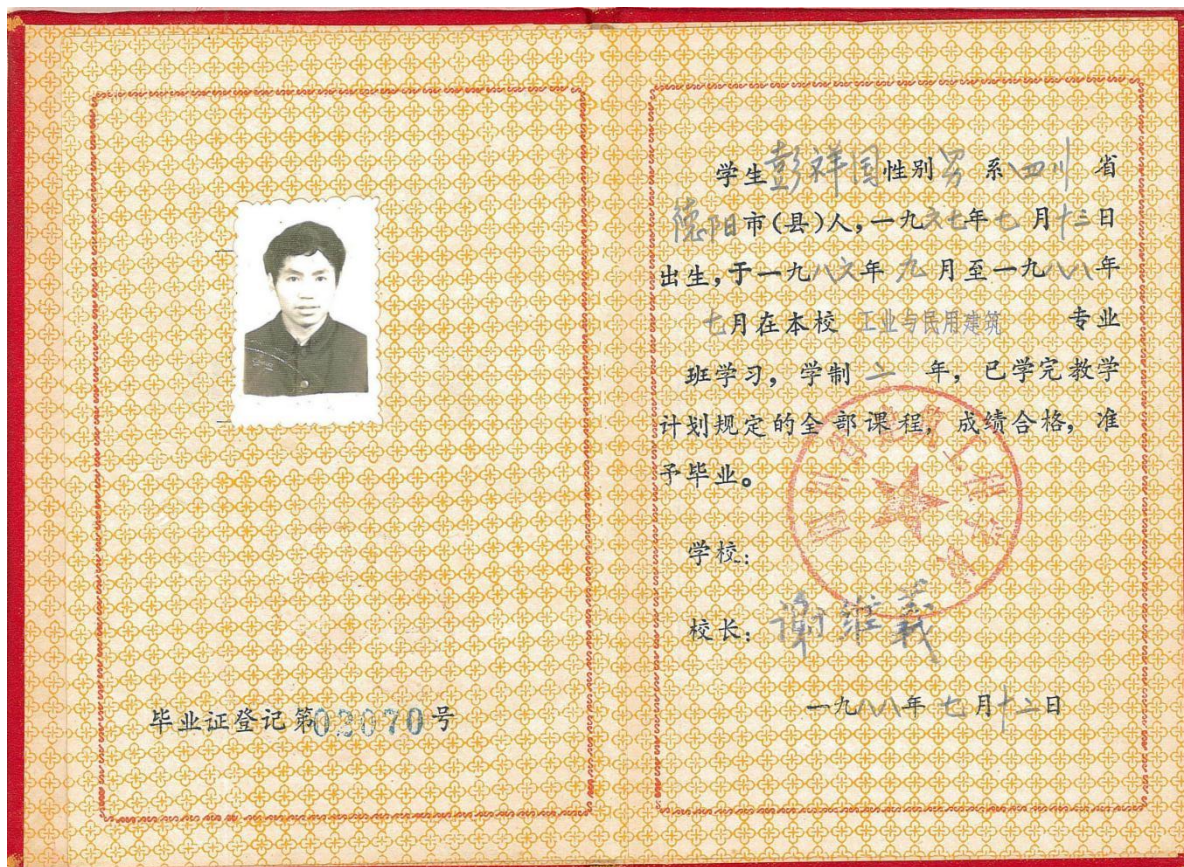 毕业证登记第02070号
学生彭祥国性别男系四川省
德阳市(县)人,一九六七年七月十三日
出生,于一九八六年九月至一九八八年
七月在本校工业与民用建筑专业
班学习,学制二年,已学完教学
计划规定的全部课程,成绩合格,准
予毕业。
学校:
四川省建筑工程学校
校长:谢维義
一九八八年七月十二日